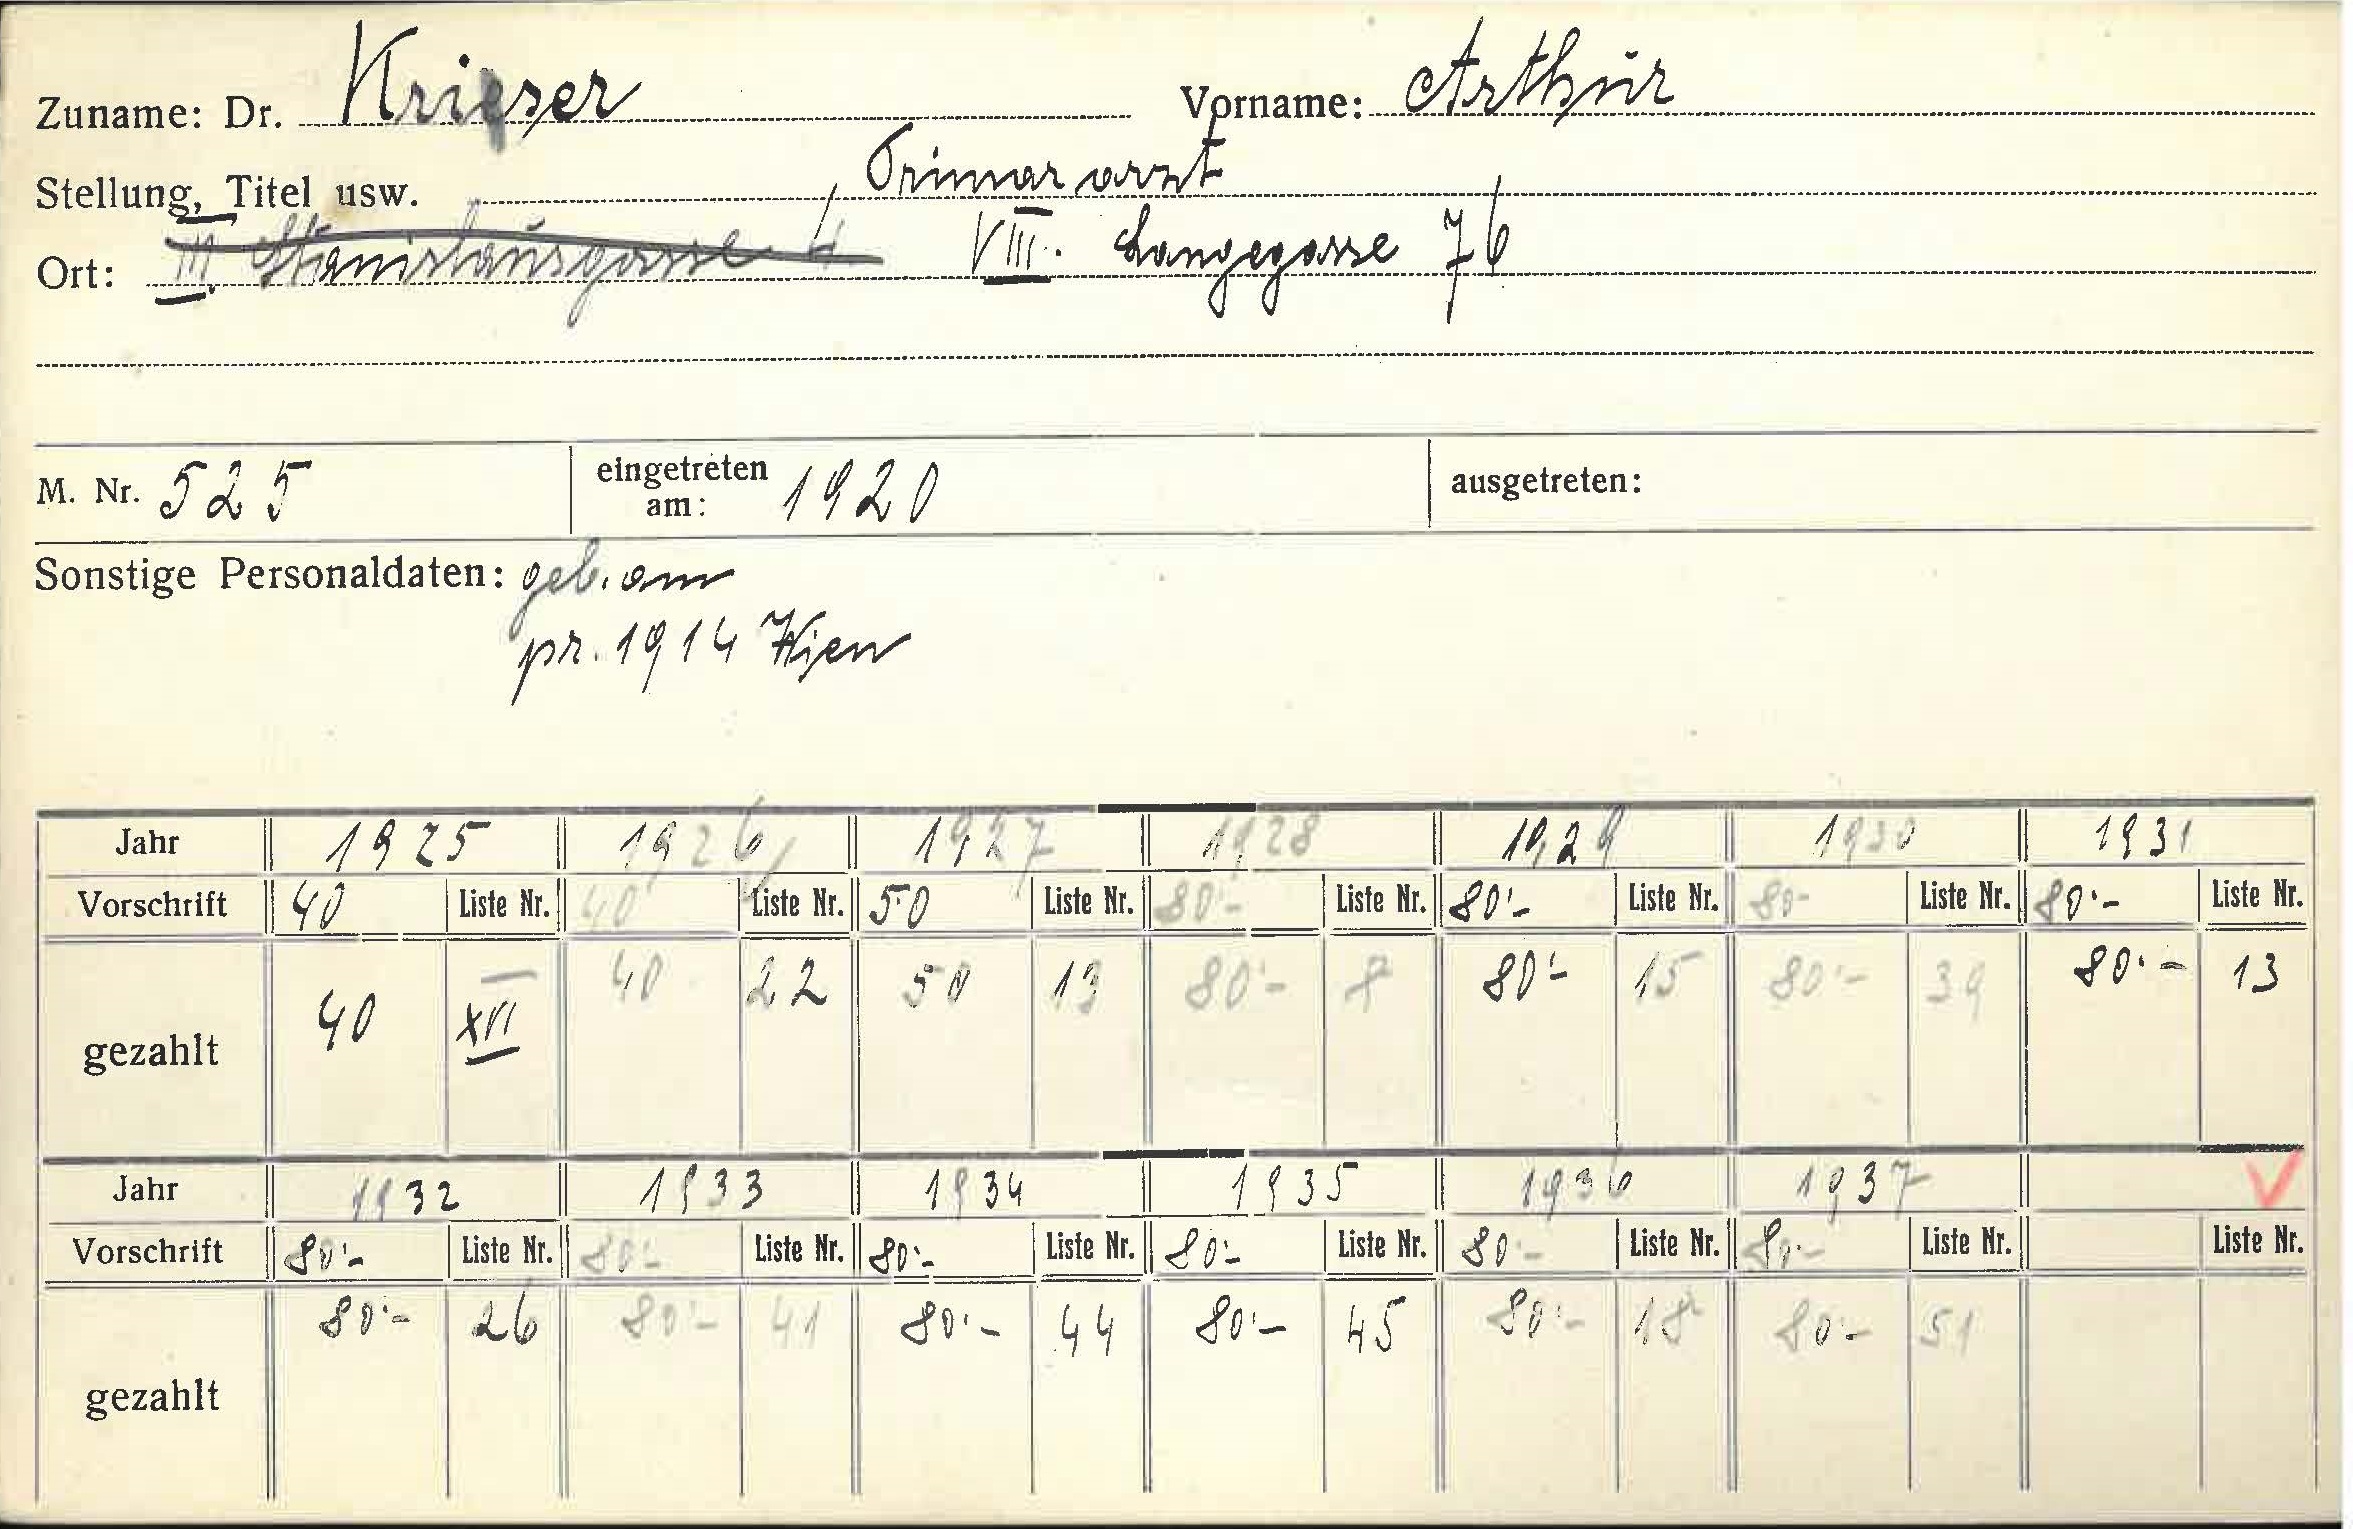 Zuname: Dr. Krieser Vorname: Arthur
Stellung, Titel usw. Primararzt
Ort: III. Stanislausgasse 4 VIII. Langegasse 76
M. Nr. 525 eingetreten am: 1920 ausgetreten:
Sonstige Personaldaten: geb. am
pr. 1914 Wien
Jahr 1925 1926 1927 1928 1929 1930 1931
Vorschrift 40 Liste Nr. 40 Liste Nr. 50 Liste Nr. 80'- Liste Nr. 80'- Liste Nr. 80- Liste Nr. 80'- Liste Nr.
gezahlt 40 XVI 40 22 50 13 80'- 7 80'- 15 80'- 39 80'- 13
Jahr 1932 1933 1934 1935 1936 1937 V
Vorschrift 80'- Liste Nr. 80'- Liste Nr. 80'- Liste Nr. 80'- Liste Nr. 80'- Liste Nr. 80'- Liste Nr. Liste Nr.
gezahlt 80'- 26 80'- 41 80'- 44 80'- 45 80'- 18 80'- 51